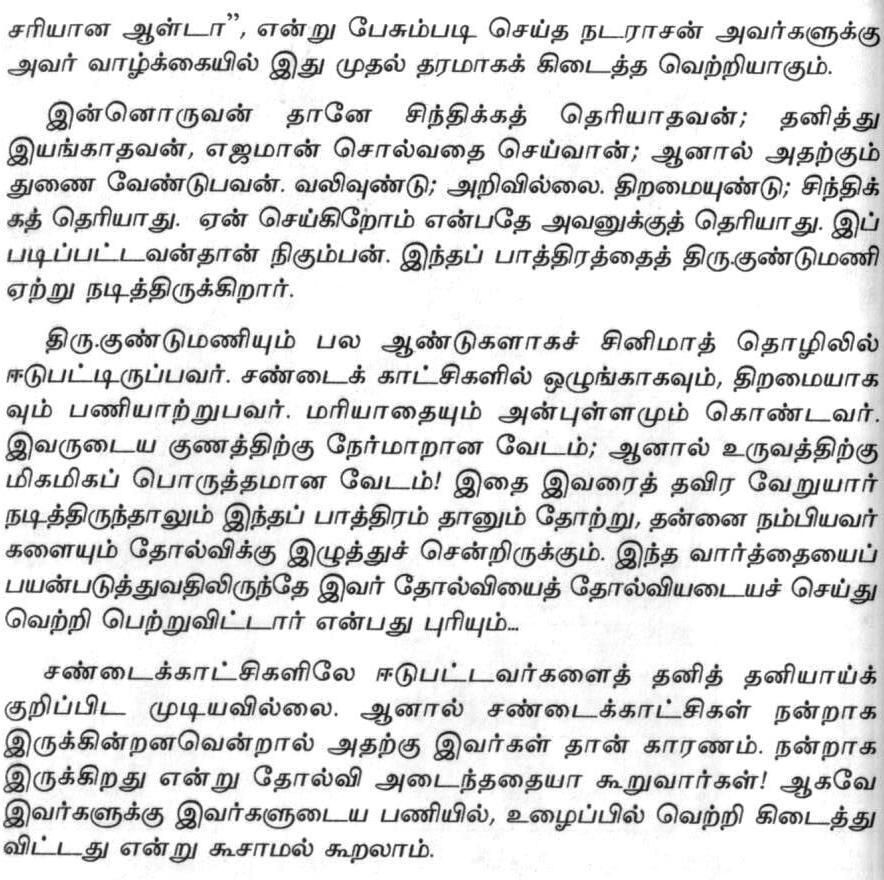 சரியான ஆள்டா”, என்று பேசும்படி செய்த நடராசன் அவர்களுக்கு
அவர் வாழ்க்கையில் இது முதல் தரமாகக் கிடைத்த வெற்றியாகும்.
இன்னொருவன் தானே சிந்திக்கத் தெரியாதவன்; தனித்து
இயங்காதவன், எஜமான் சொல்வதை செய்வான்; ஆனால் அதற்கும்
துணை வேண்டுபவன். வலிவுண்டு; அறிவில்லை. திறமையுண்டு; சிந்திக்
கத் தெரியாது. ஏன் செய்கிறோம் என்பதே அவனுக்குத் தெரியாது. இப்
படிப்பட்டவன்தான் நிகும்பன். இந்தப் பாத்திரத்தைத் திரு.குண்டுமணி
ஏற்று நடித்திருக்கிறார்.
திரு.குண்டுமணியும் பல ஆண்டுகளாகச் சினிமாத் தொழிலில்
ஈடுபட்டிருப்பவர். சண்டைக் காட்சிகளில் ஒழுங்காகவும், திறமையாக
வும் பணியாற்றுபவர். மரியாதையும் அன்புள்ளமும் கொண்டவர்.
இவருடைய குணத்திற்கு நேர்மாறான வேடம்; ஆனால் உருவத்திற்கு
மிகமிகப் பொருத்தமான வேடம்! இதை இவரைத் தவிர வேறுயார்
நடித்திருந்தாலும் இந்தப் பாத்திரம் தானும் தோற்று, தன்னை நம்பியவர்
களையும் தோல்விக்கு இழுத்துச் சென்றிருக்கும். இந்த வார்த்தையைப்
பயன்படுத்துவதிலிருந்தே இவர் தோல்வியைத் தோல்வியடையச் செய்து
வெற்றி பெற்றுவிட்டார் என்பது புரியும்...
சண்டைக்காட்சிகளிலே ஈடுபட்டவர்களைத் தனித் தனியாய்க்
குறிப்பிட முடியவில்லை. ஆனால் சண்டைக்காட்சிகள் நன்றாக
இருக்கின்றனவென்றால் அதற்கு இவர்கள் தான் காரணம். நன்றாக
இருக்கிறது என்று தோல்வி அடைந்ததையா கூறுவார்கள்! ஆகவே
இவர்களுக்கு இவர்களுடைய பணியில், உழைப்பில் வெற்றி கிடைத்து
விட்டது என்று கூசாமல் கூறலாம்.